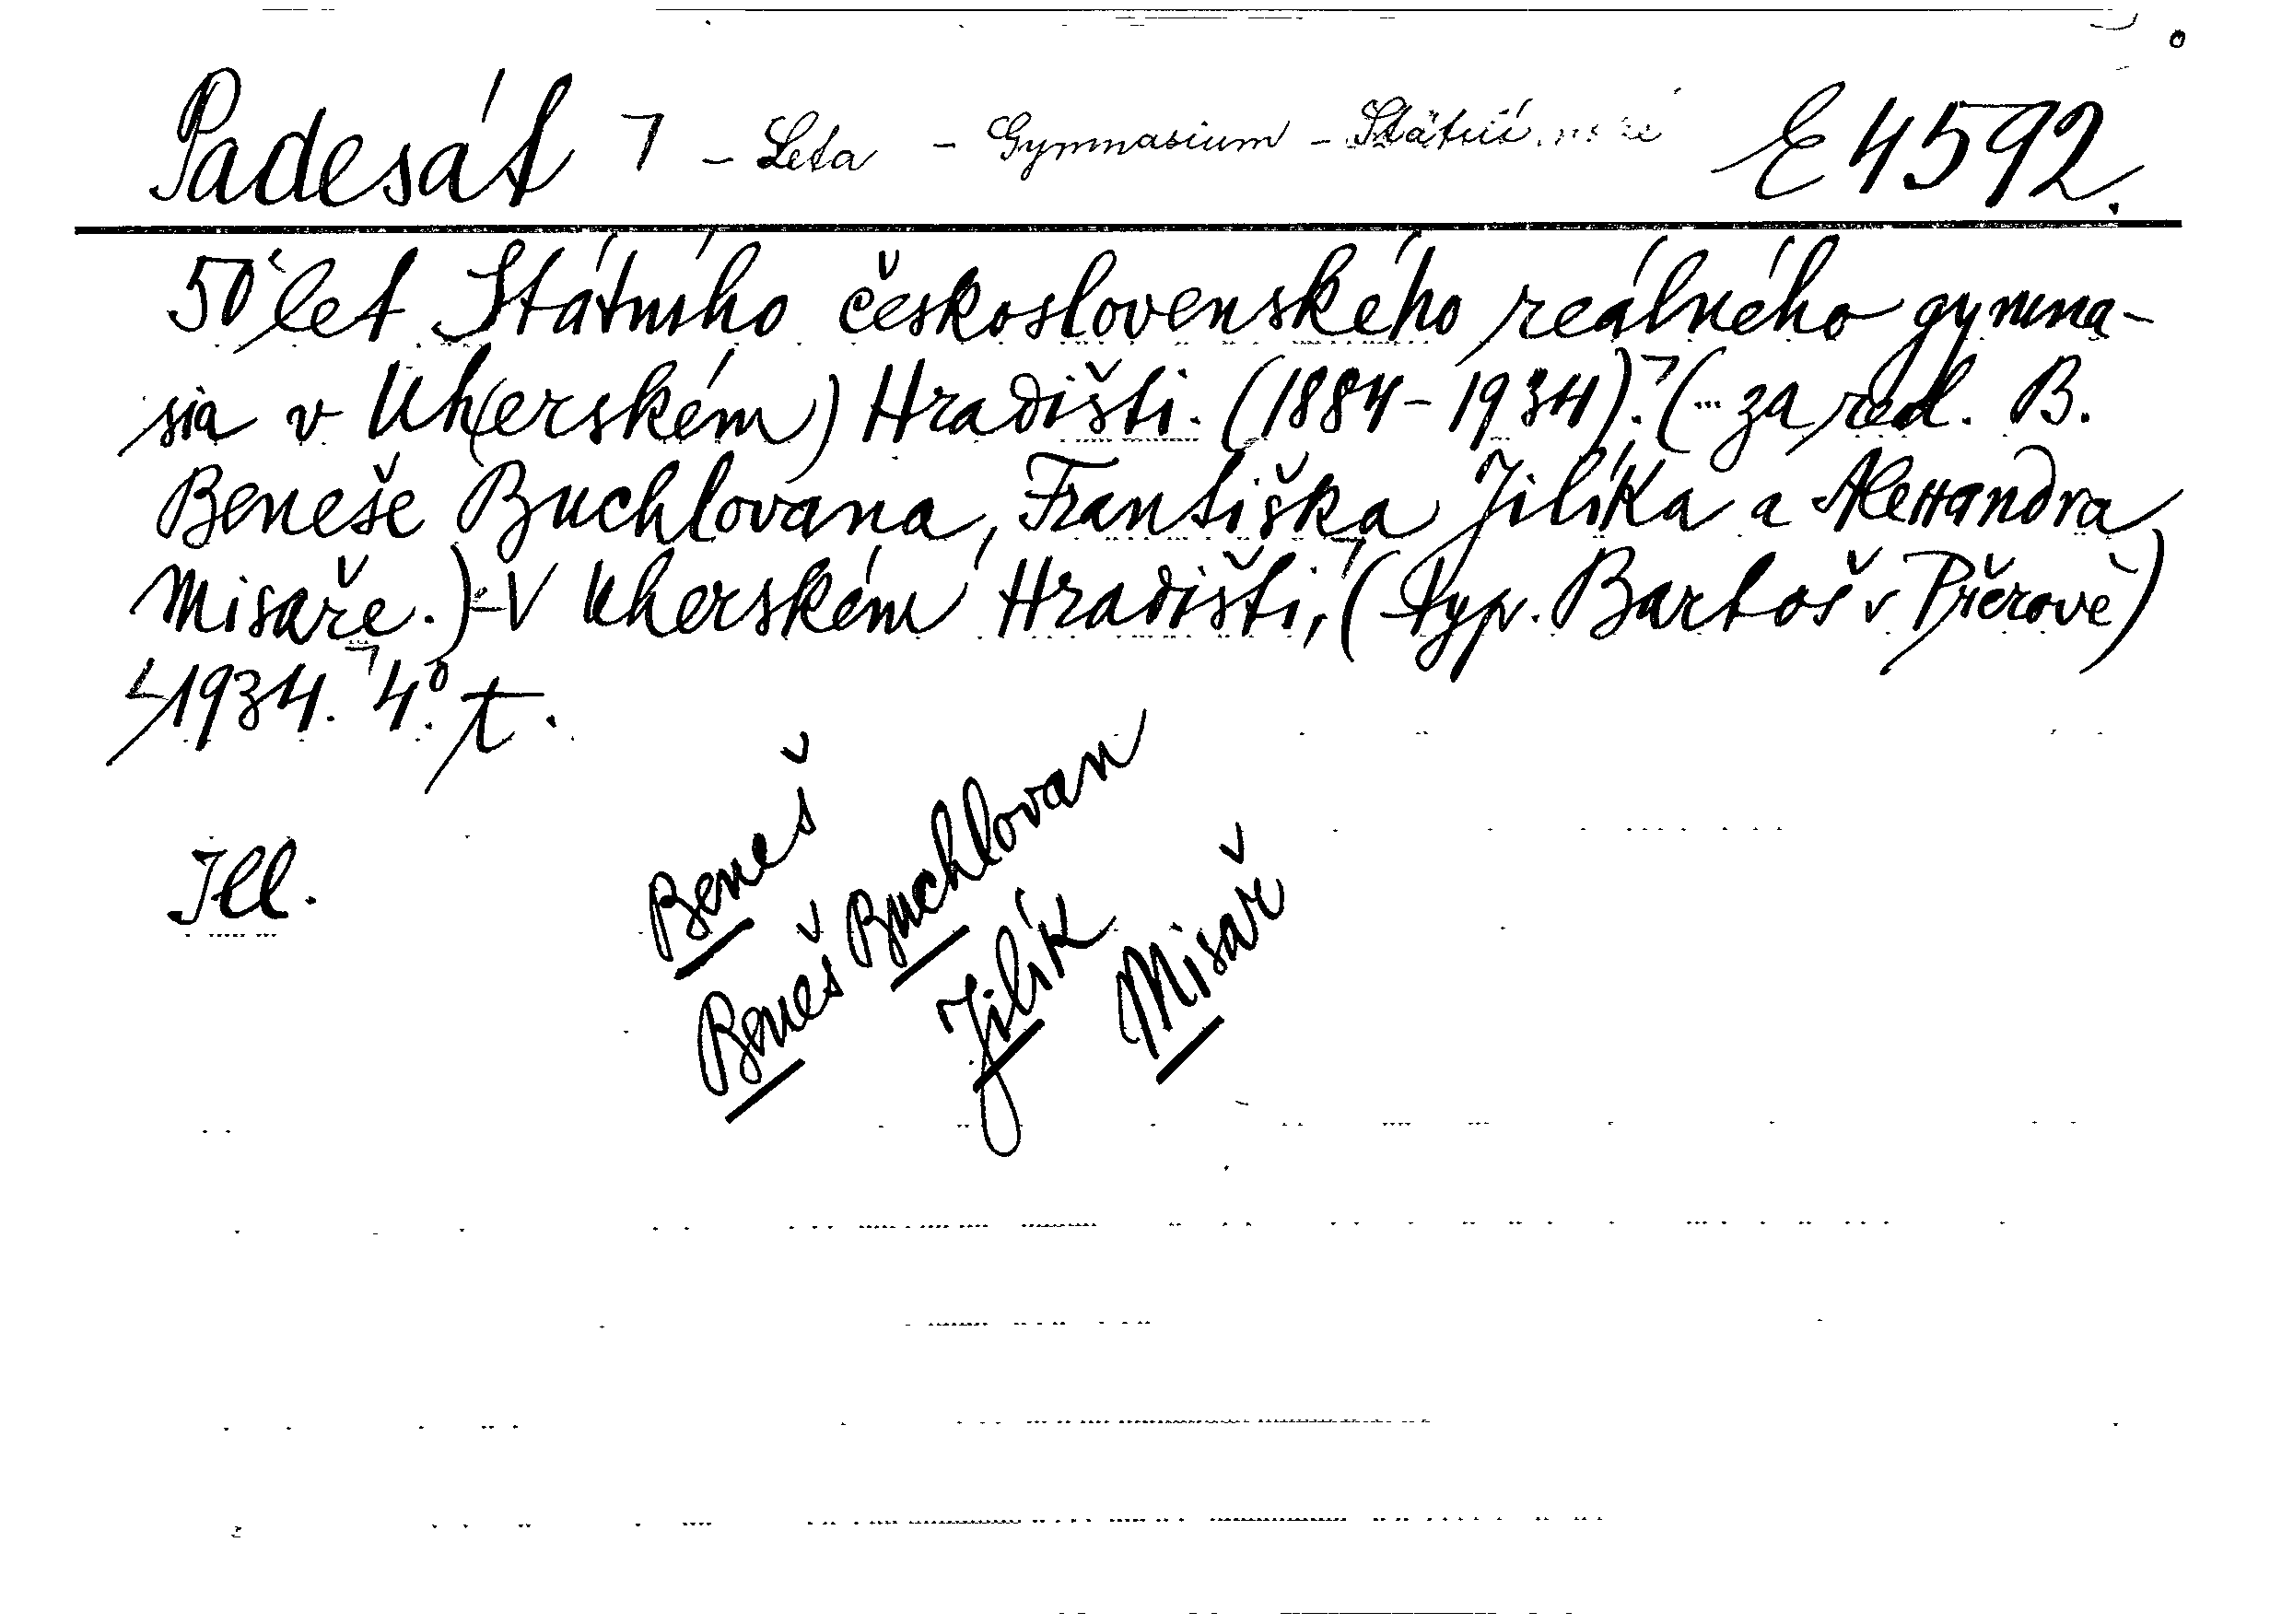 Padesát ⌉ - Leta - Gymnasium - Státní E 4592.
50 let Státního československého reálného gymna-
sia v Uh(erském) Hradišti. (1884-1934).⌉ (... za red. B.
Beneše Buchlovana, Františka Jilíka a Alexandra
Misaře.) - V Uherském Hradišti,⌉ (typ. Bartoš v Přerově)
1934.⌉ 4°. t.
Ill.
Beneš
Beneš Buchlovan
Jilík
Misař